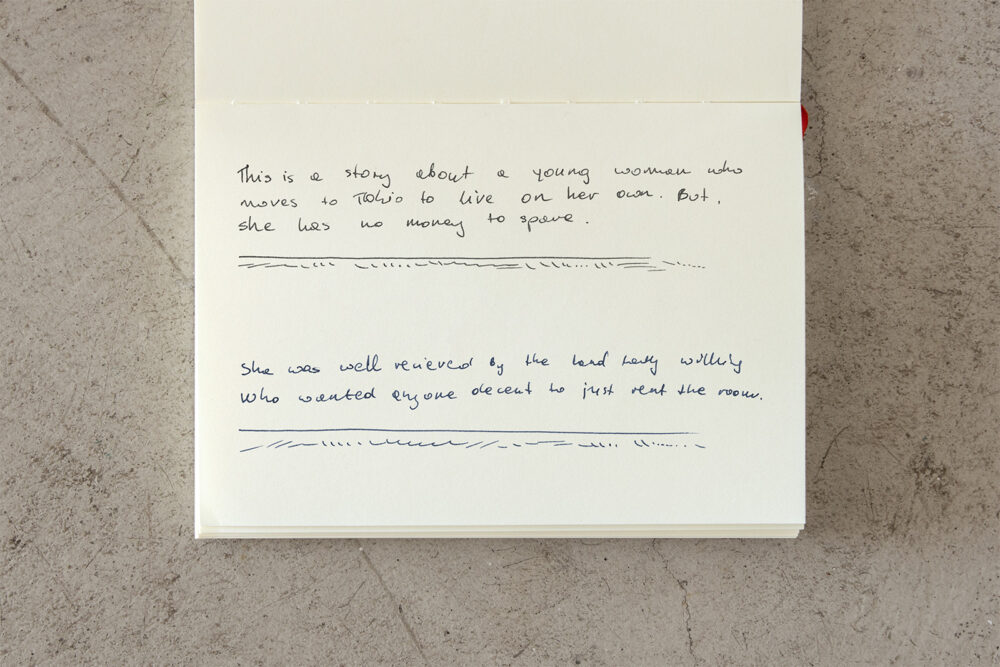 This is a story about a young woman who
moves to Tokio to live on her own. But,
she has no money to spare.
She was well recieved by the land lady willing
who wanted anyone decent to just rent the room.